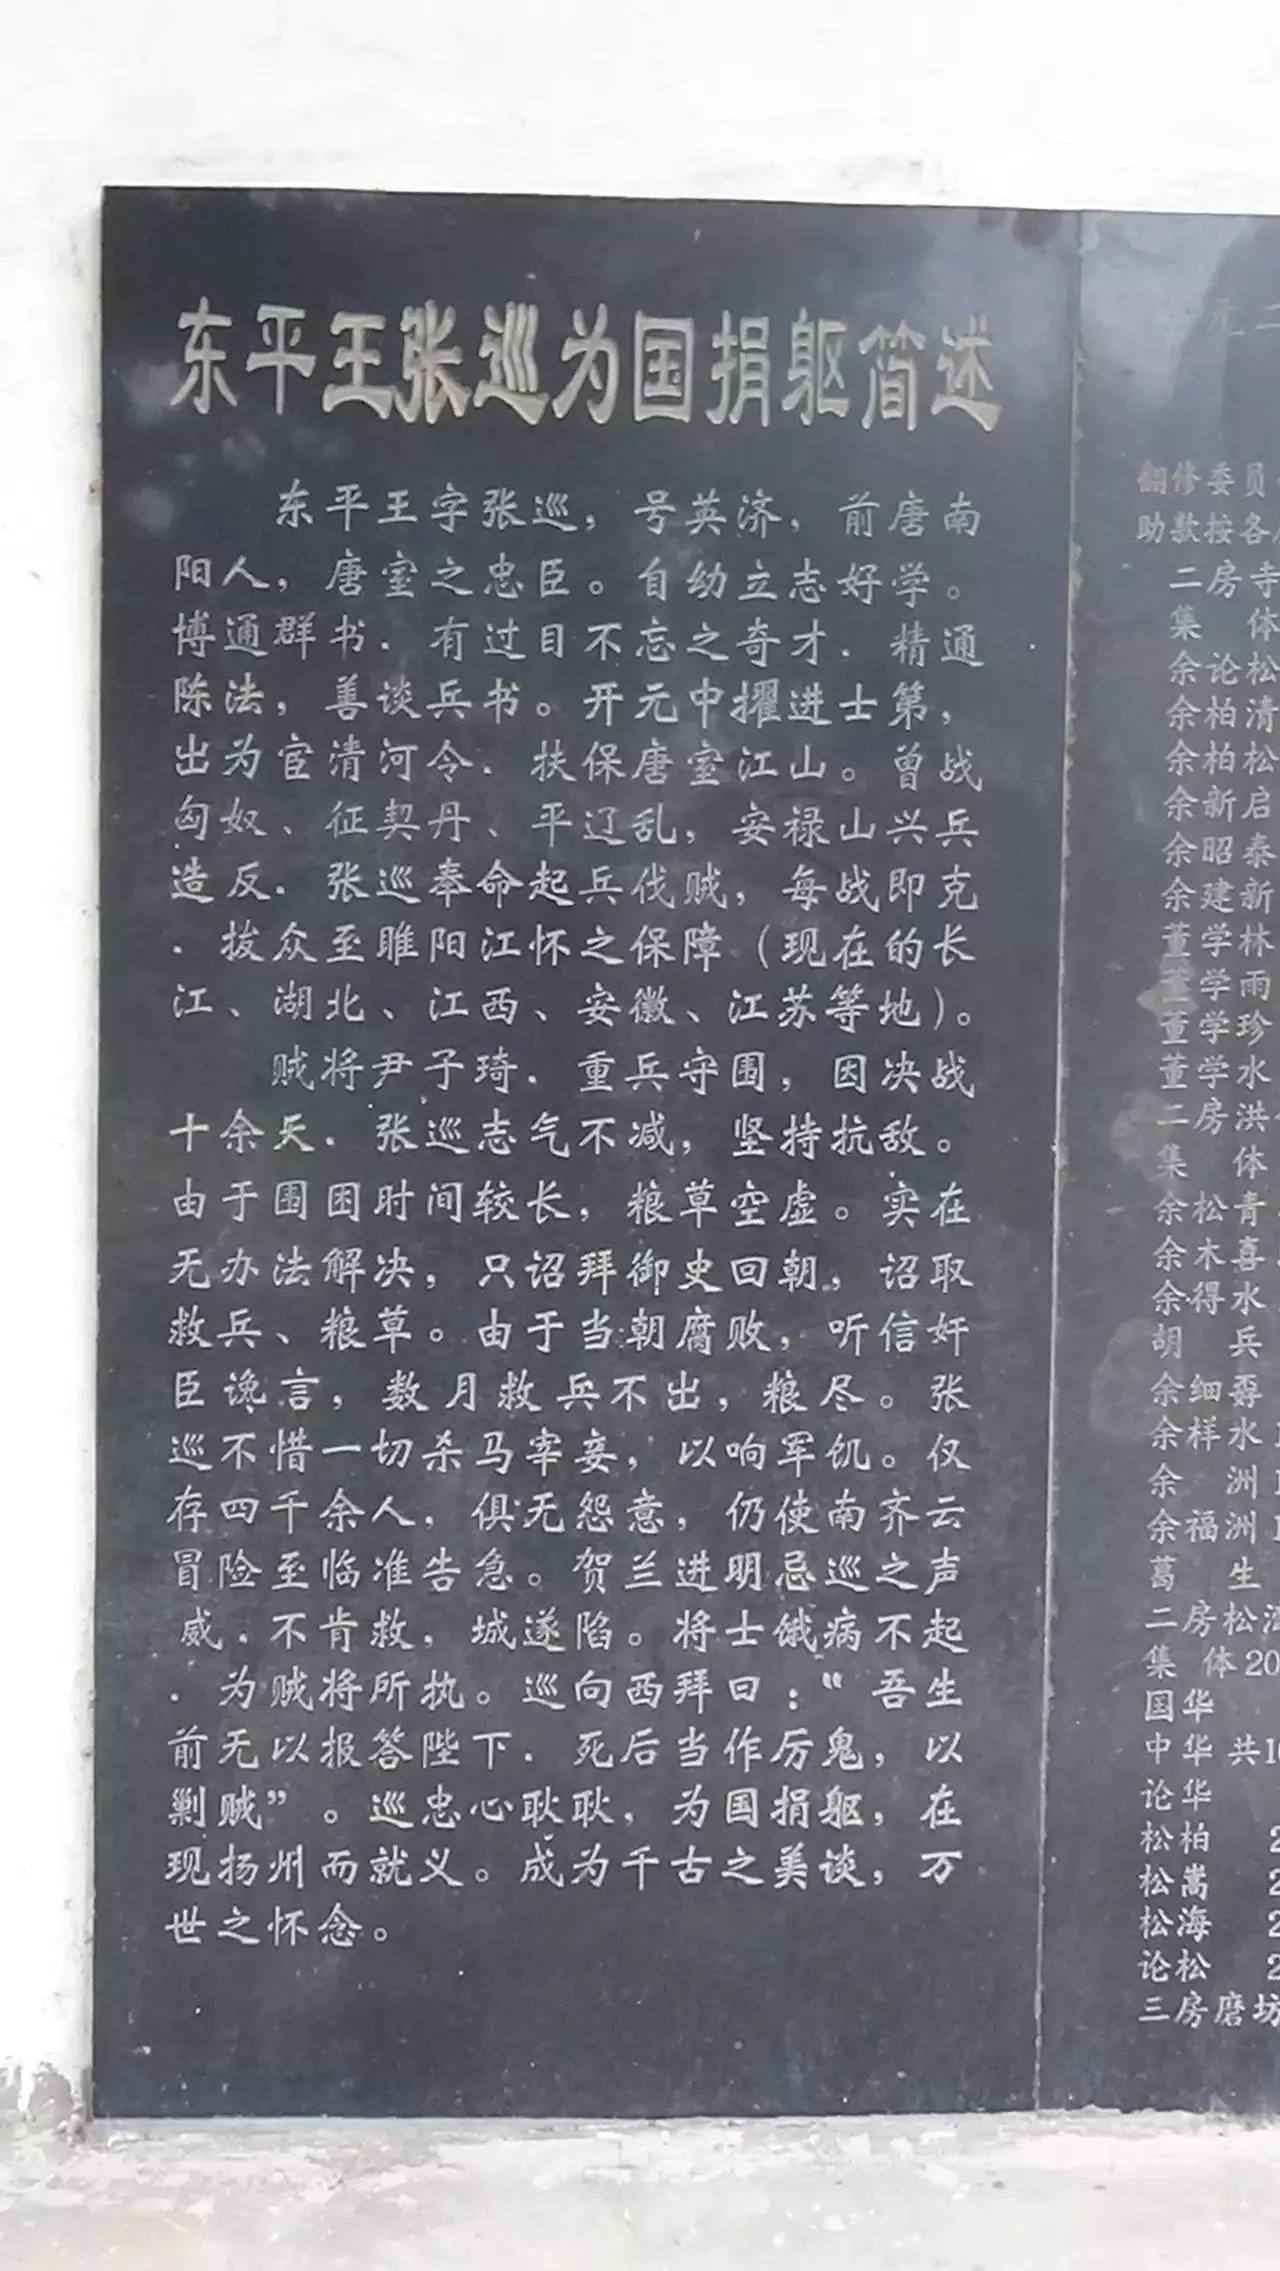 东平王张巡为国捐躯简述
东平王字张巡，号英济，前唐南
阳人，唐室之忠臣。自幼立志好学。
博通群书．有过目不忘之奇才．精通
陈法，善谈兵书。开元中擢进士第，
出为宦清河令．扶保唐室江山。曾战
匈奴、征契丹、平辽乱，安禄山兴兵
造反．张巡奉命起兵伐贼，每战即克
．拔众至睢阳江怀之保障（现在的长
江、湖北、江西、安徽、江苏等地）。
贼将尹子琦．重兵守围，因决战
十余天．张巡志气不减，坚持抗敌。
由于围困时间较长，粮草空虚。实在
无办法解决，只诏拜御史回朝，诏取
救兵、粮草。由于当朝腐败，听信奸
臣谗言，数月救兵不出，粮尽。张
巡不惜一切杀马宰妾，以响军饥。仅
存四千余人，俱无怨意，仍使南齐云
冒险至临准告急。贺兰进明忌巡之声
威．不肯救，城遂陷。将士饿病不起
．为贼将所执。巡向西拜曰：“吾生
前无以报答陛下．死后当作厉鬼，以
剿贼”。巡忠心耿耿，为国捐躯，在
现扬州而就义。成为千古之美谈，万
世之怀念。
元二
翻修委员
助款按各
二房寺
集 体
余论松
余柏清
余柏松
余新启
余昭泰
余建新
董学林
董学雨
董学珍
董学水
二房洪
集 体
余松青
余木喜
余得水
胡 兵
余细孬
余样水
余 洲
余福洲
葛 生
二房松海
集 体20
国华
中华 共10
论华
松柏 2
松嵩 2
松海 2
论松 2
三房磨坊